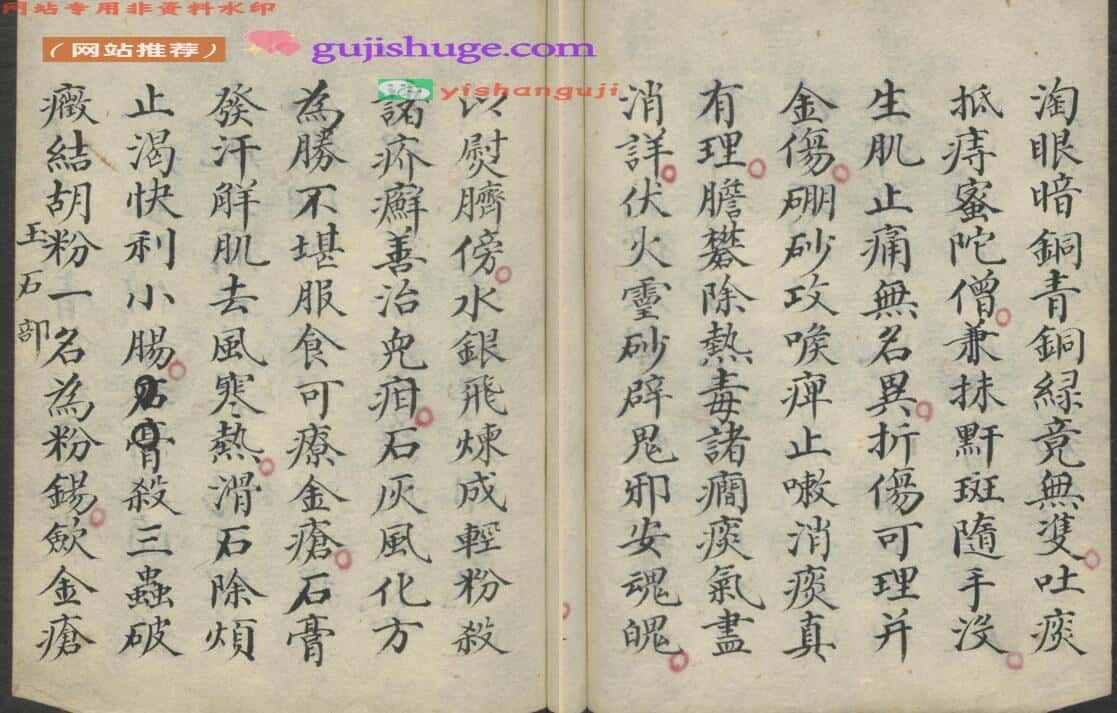 网站专用非资料水印
（网站推荐）
gujishuge.com
yishanguji
淘眼暗銅青銅緑竟無雙吐痰
抵痔蜜陀僧兼抹䵟斑隨手沒
生肌止痛無名異折傷可理并
金傷硼砂攻喉痺止嗽消痰真
有理膽礬除熱毒諸癇痰氣盡
消詳伏火靈砂辟鬼邪安魂魄
以熨臍傍水銀飛煉成輕粉殺
諸疥癬善治兒疳石灰風化方
為勝不堪服食可療金瘡石膏
發汗解肌去風寒熱滑石除煩
止渴快利小腸膏殺三蟲破
癥結胡粉一名為粉錫歛金瘡
玉石部